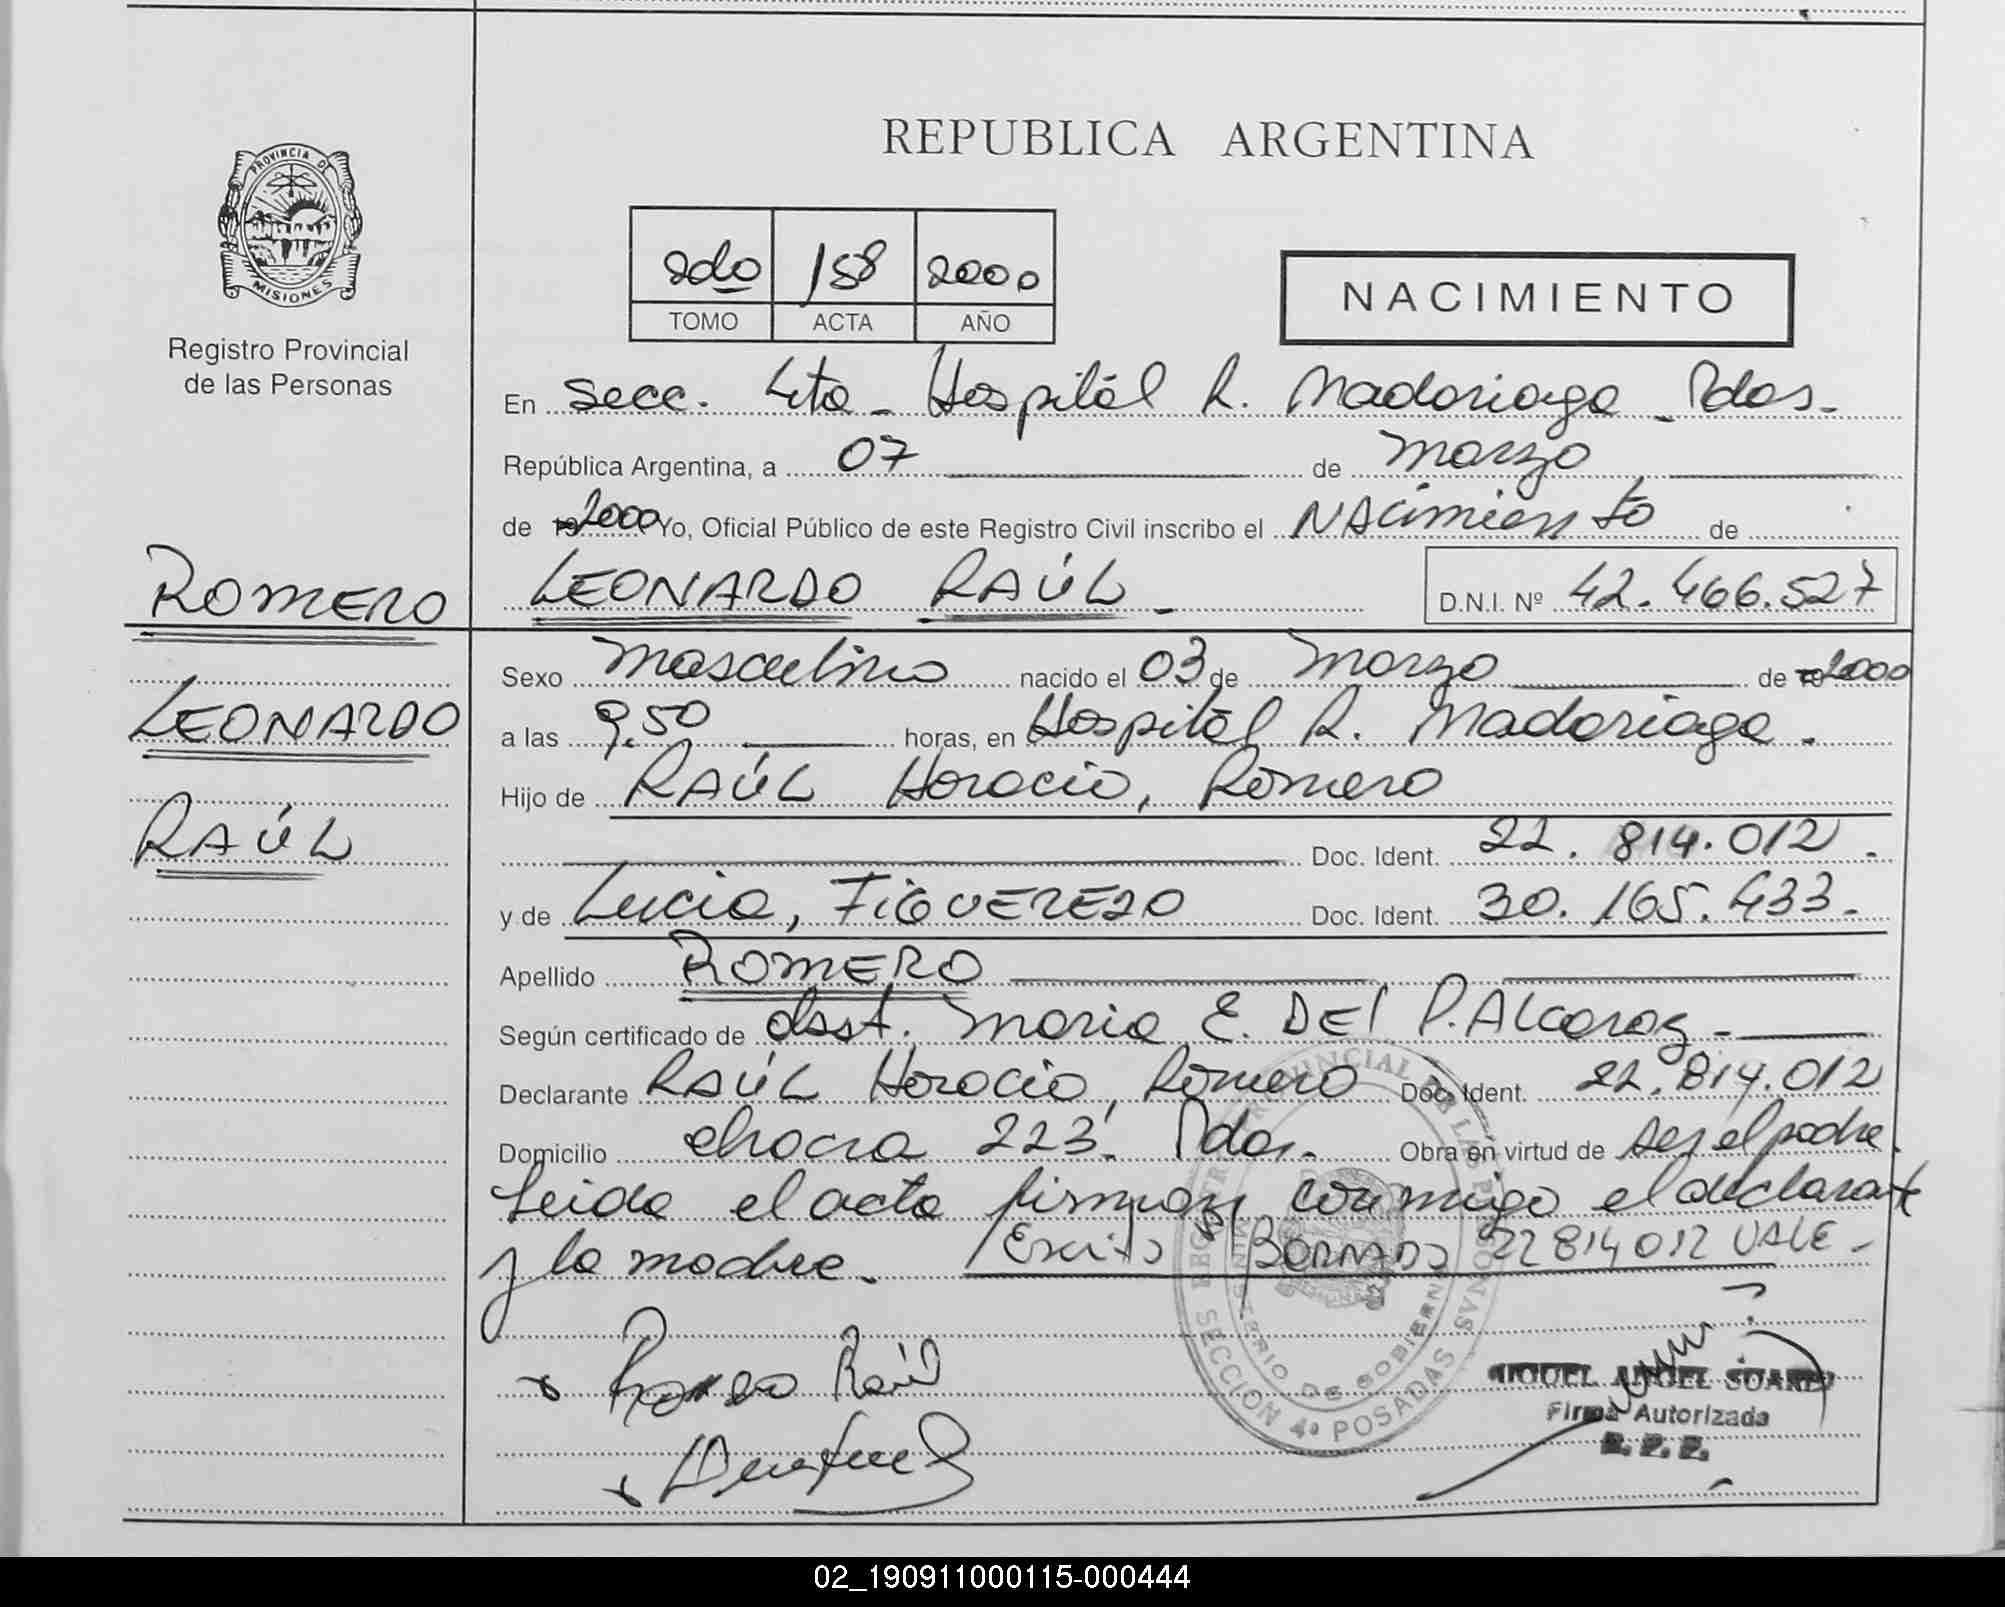 REPUBLICA ARGENTINA
PROVINCIA DE
MISIONES
Registro Provincial
de las Personas
2do 158 2000
TOMO ACTA AÑO
NACIMIENTO
En Secc. 4ta - Hospitál R. Madariaga - Pdas.
República Argentina, a 07 de Marzo
de 19 2000 Yo, Oficial Público de este Registro Civil inscribo el NAcimiento de
ROMERO
LEONARDO RAÚL - D.N.I. Nº 42.466.527
Sexo Masculino nacido el 03 de Marzo de 19 2000
LEONARDO
a las 9,50 horas, en Hospitál R. Madariaga.
Hijo de RAÚL Horacio, Romero
RAÚL
Doc. Ident. 22.814.012.
y de Lucia, FIGUEREDO Doc. Ident. 30.165.433.
Apellido ROMERO
Según certificado de obst. Maria E. DEl P. Alcaraz -
Declarante RAÚL Horacio, Romero Doc. Ident. 22.814.012
Domicilio chacra 223. Pdas. Obra en virtud de ser el padre.
Leida el acta firman conmigo el declarante
y la madre. Escrito S/ BORRADO 22814012 VALE -
REGISTRO PROVINCIAL DE LAS PERSONAS
MINISTERIO DE GOBIERNO
SECCION 4ª POSADAS
Romero Raúl
MIGUEL ANGEL SUAREZ
Firma Autorizada
R. P. P.
02_190911000115-000444